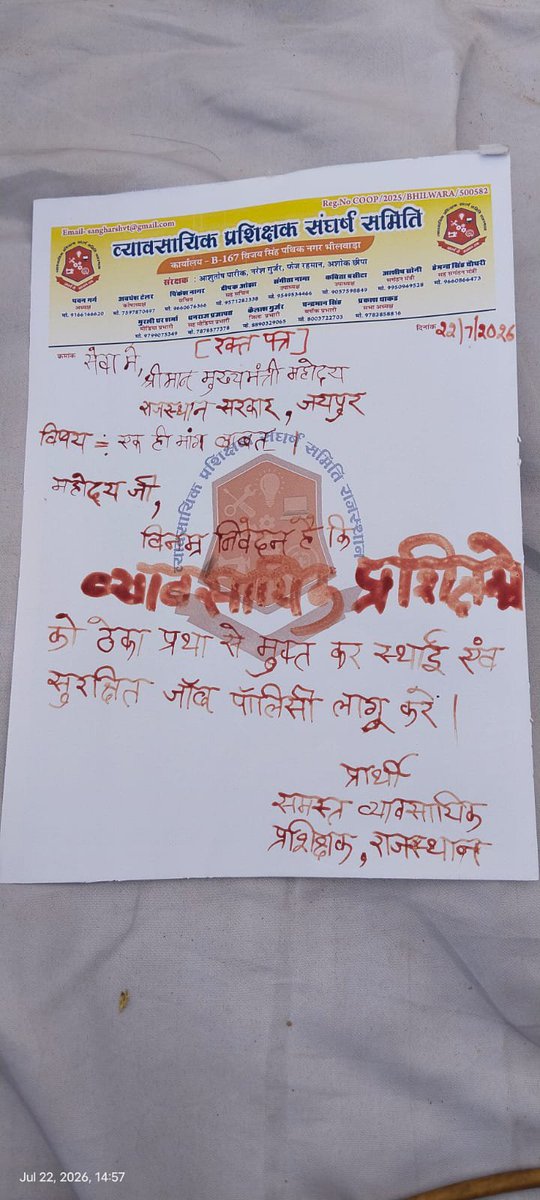 Reg.No COOP/2025/BHILWARA/500582
Email- sangharshvt@gmail.com
व्यावसायिक प्रशिक्षक संघर्ष समिति
कार्यालय - B-167 विजय सिंह पथिक नगर भीलवाड़ा
संरक्षक : आशुतोष पारीक, नरेश गुर्जर, फेज रहमान, अशोक छीपा
पवन गर्ग
अध्यक्ष
मो. 9166166620
अवधेश टेलर
कोषाध्यक्ष
मो. 7597870697
प्रियंक नागर
सचिव
मो. 9660676366
दीपक ओझा
सह सचिव
मो. 9571282338
संगीता नामा
उपाध्यक्ष
मो. 9549534466
कविता बसीटा
उपाध्यक्ष
मो. 9057598849
आशीष सोनी
संगठन मंत्री
मो. 9950969528
हेमन्त सिंह चौधरी
सह संगठन मंत्री
मो. 9660866473
मुरली धर शर्मा
मीडिया प्रभारी
मो. 9799075349
धनराज प्रजापत
सह मीडिया प्रभारी
मो. 7878577378
कैलाश गुर्जर
जिला प्रभारी
मो. 8890329065
घनश्याम सिंह
मो. 8003722703
प्रकाश धाकड़
सभा अध्यक्ष
मो. 9783858816
क्रमांक
दिनांक 22/7/2026
[रक्त पत्र]
सेवा में,
श्रीमान मुख्यमंत्री महोदय
राजस्थान सरकार, जयपुर
विषय :- एक ही मांग बाबत ।
महोदय जी,
विनम्र निवेदन है कि
व्यावसायिक प्रशिक्षको
को ठेका प्रथा से मुक्त कर स्थाई एंव
सुरक्षित जॉब पॉलिसी लागू करें ।
प्रार्थी
समस्त व्यावसायिक
प्रशिक्षक, राजस्थान
व्यावसायिक प्रशिक्षक संघर्ष समिति राजस्थान
Jul 22, 2026, 14:57